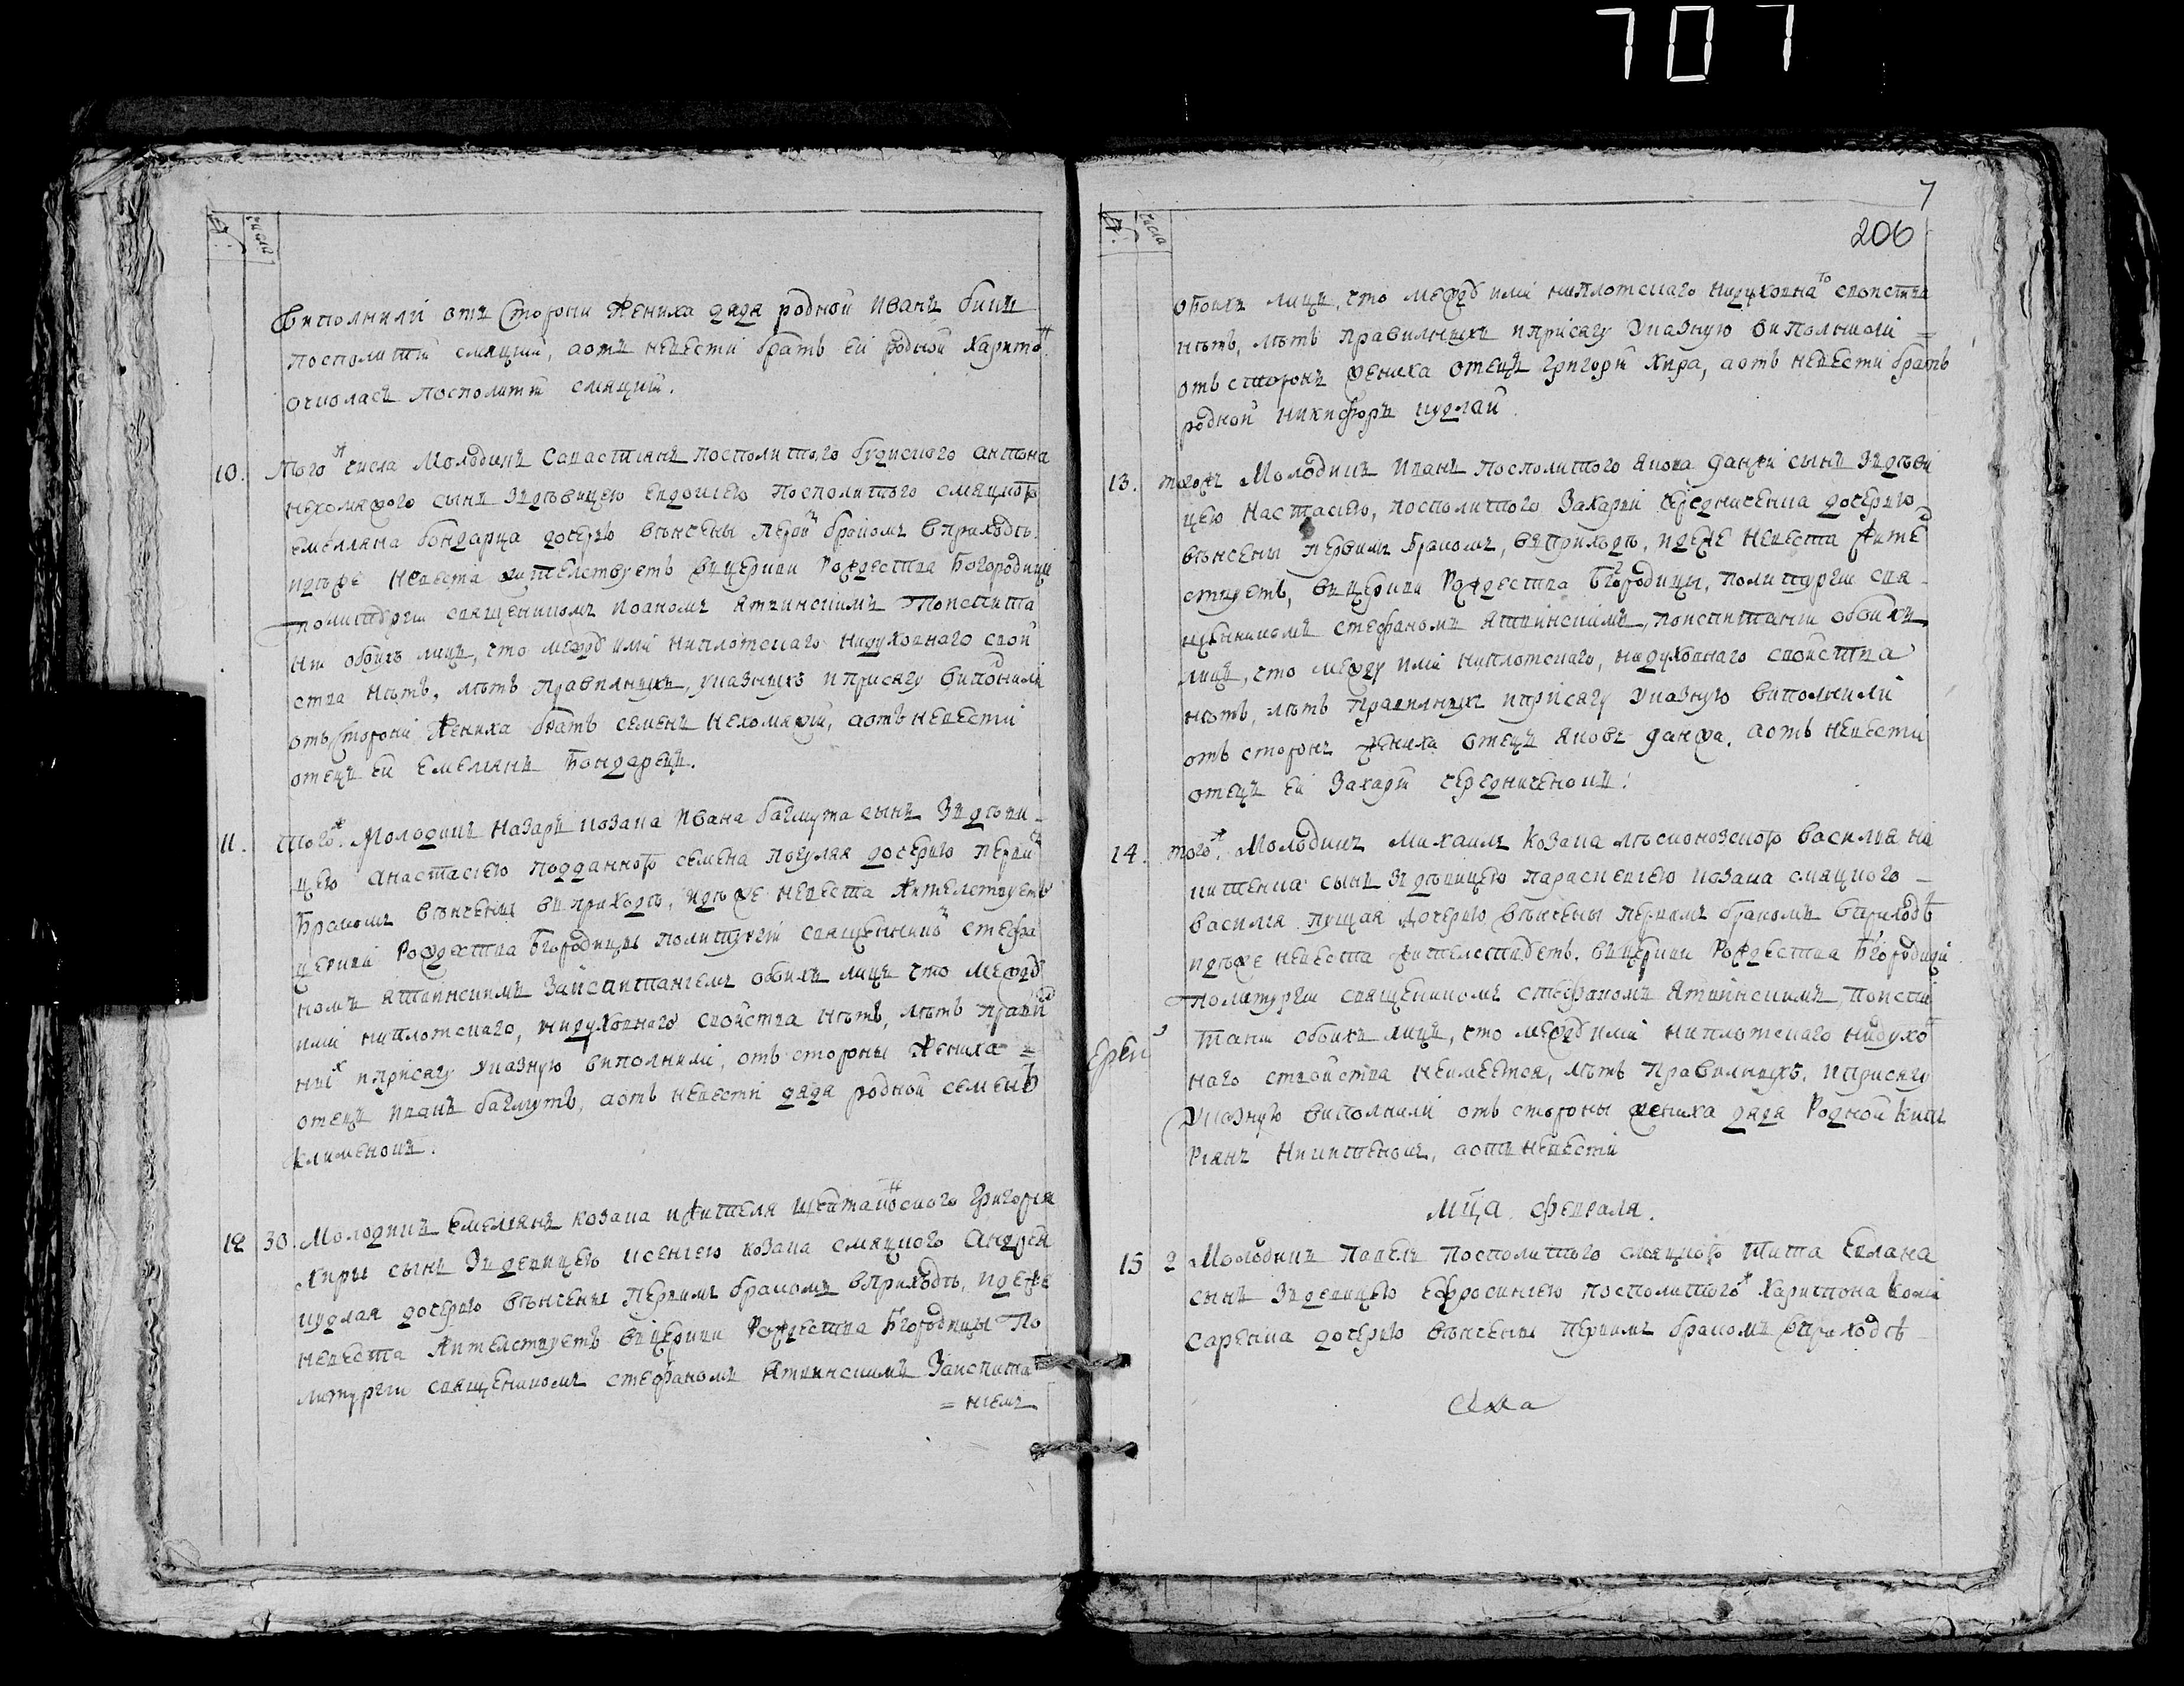 707
№:
числа
виполнили отъ Сторони жениха дядя родной Иванъ бицъ
посполитій смяцкий, аотъ невести братъ ей родной харитон
посполитій смяцкий.
10. Того ж числа Молодикъ Савастиянъ посполитого будиского антона
нехомяжого сынъ Здѣвицею евдокиею посполитого смяцкого
емелляна бондарца дочерю вѣнчены первим бракомъ вприходѣ
идѣже невѣста жителствуетъ вцеркви Рождества Богородици
политургіи священикомъ иоаномъ ятвинскимъ Поиспита
ніи обоихъ лицъ, что между ими ниплотскаго нидуховнаго свой
ства нѣтъ, лѣтъ правилныхъ, указныхъ иприсягу виполнили
отъ сторони жениха братъ семенъ нехомяжій, аотъ невести
отецъ ей емелянъ бондарецъ.
11. того ж. Молодикъ назаръ козака Ивана бахмута сынъ Здѣви
цею анастасиею подданного семена погуляя дочерю первим
бракомъ вѣнчены вприходѣ, идѣже невеста жителствуетъ
церкви Рождества Бгородицы политургіи священником стефа
номъ ятвинскимъ Заиспитаніемъ обоихъ лицъ что между
ими ниплотскаго, нидуховнаго свойства нѣтъ, лѣтъ правил
них иприсягу указную виполнили, отъ стороны жениха =
отецъ иванъ бахмутъ, аотъ невести дядя родной семенъ
клименокъ.
12 30. Молодикъ емелянъ козака ижителя Григория
Хиры сынъ Здевицею ксениею козака смяцкого Андрея
кудлая дочерю вѣнчены первимъ бракомъ вприходѣ, идеже
невеста жителствуетъ вцеркви Рождества Бгородицы По
литургіи священикомъ стефаномъ ятвинскимъ Заиспита
= ніемъ
7
206
№:
числа
обоихъ лицъ, что между ими ниплотскаго нидуховнаго свойства
нѣтъ, лѣтъ правилныхъ иприсягу указную виполнили =
отъ сторонъ жениха отецъ григорій хира, аотъ невести братъ
родной никифоръ кудлай.
13. того ж Молодикъ Иванъ посполитого якова данжи сынъ Здѣви
цею настасиею, посполитого Захарій середниченка дочерю
вѣнчены первимъ бракомъ, вприходѣ, идеже невеста жител
ствуетъ, вцеркви Рождества Бгородицы, политургіи свя
щенникомъ стефаномъ ятвинскимъ, поиспитаніи обоихъ
лицъ, что между ими ниплотскаго, нидуховнаго свойства
нѣтъ, лѣтъ правилныхъ иприсягу указную виполнили
отъ сторонъ жениха отецъ яковъ данжа. аотъ невести
отецъ ей Захарій середниченокъ.
14. того ж. Молодикъ михаилъ козака василия ни
китенка сынъ Здѣвицею параскевиею козака смяцкого
василия пущая дочерю вѣнчены первимъ бракомъ вприходѣ
идѣже невеста жителствуетъ, вцеркви Рождества Бгородици.
политургіи священикомъ стефаномъ ятвинскимъ, поиспи
таніи обоихъ лицъ, что между ими ниплотскаго нидухов
наго свойства неимеется, лѣтъ правилныхъ, иприсягу
указную виполнили отъ стороны жениха дядя Родной кип
рянъ Никитенокъ, аотъ невести
Ерей
Мца февраля.
15 2 Молодикъ павелъ посполитого смяцкого тита евлана
сынъ Здевицею ефросиниею посполитого ж харитона коми
саренка дочерю вѣнчены первимъ бракомъ вприходѣ